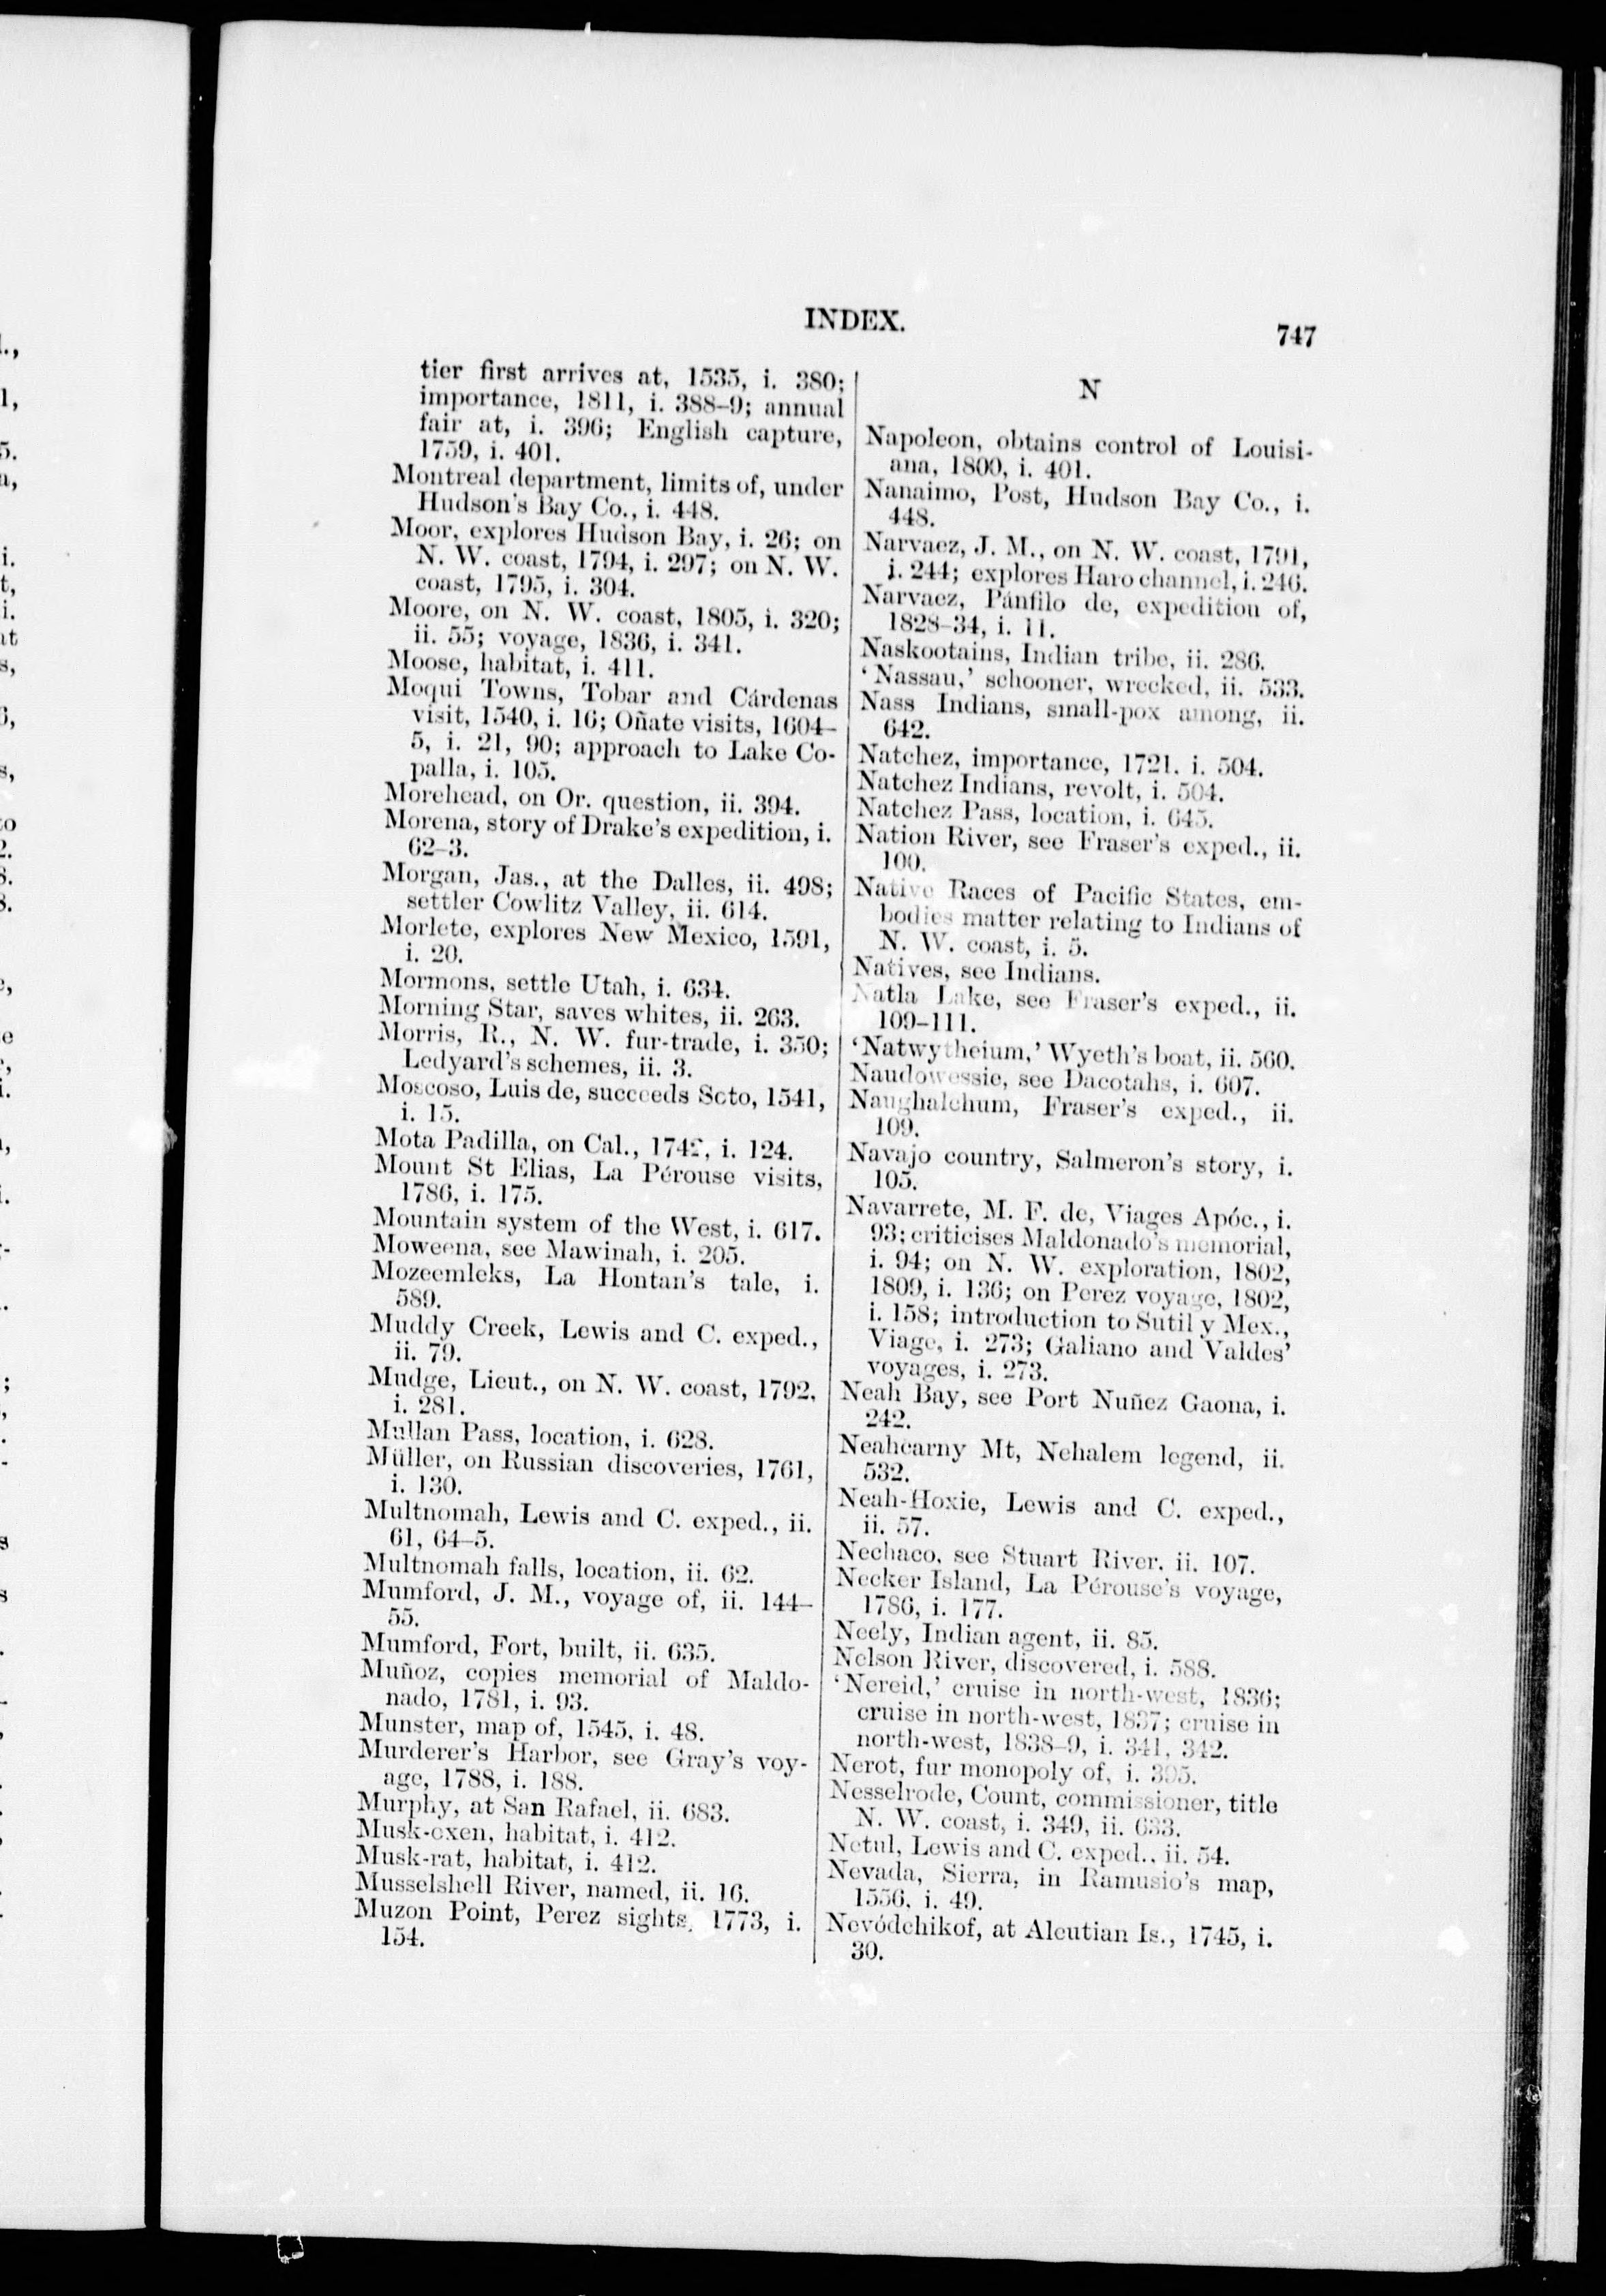 INDEX.
747
tier first arrives at, 1535, i. 380;
importance, 1811, i. 388–9; annual
fair at, i. 396; English capture,
1759, i. 401.
Montreal department, limits of, under
Hudson's Bay Co., i. 448.
Moor, explores Hudson Bay, i. 26; on
N. W. coast, 1794, i. 297; on N. W.
coast, 1795, i. 304.
Moore, on N. W. coast, 1805, i. 320;
ii. 55; voyage, 1836, i. 341.
Moose, habitat, i. 411.
Moqui Towns, Tobar and Cárdenas
visit, 1540, i. 16; Oñate visits, 1604–
5, i. 21, 90; approach to Lake Co-
palla, i. 105.
Morehead, on Or. question, ii. 394.
Morena, story of Drake's expedition, i.
62–3.
Morgan, Jas., at the Dalles, ii. 498;
settler Cowlitz Valley, ii. 614.
Morlete, explores New Mexico, 1591,
i. 20.
Mormons, settle Utah, i. 634.
Morning Star, saves whites, ii. 263.
Morris, R., N. W. fur-trade, i. 350;
Ledyard's schemes, ii. 3.
Moscoso, Luis de, succeeds Soto, 1541,
i. 15.
Mota Padilla, on Cal., 1742, i. 124.
Mount St Elias, La Pérouse visits,
1786, i. 175.
Mountain system of the West, i. 617.
Moweena, see Mawinah, i. 205.
Mozeemleks, La Hontan's tale, i.
589.
Muddy Creek, Lewis and C. exped.,
ii. 79.
Mudge, Lieut., on N. W. coast, 1792,
i. 281.
Mullan Pass, location, i. 628.
Müller, on Russian discoveries, 1761,
i. 130.
Multnomah, Lewis and C. exped., ii.
61, 64–5.
Multnomah falls, location, ii. 62.
Mumford, J. M., voyage of, ii. 144–
55.
Mumford, Fort, built, ii. 635.
Muñoz, copies memorial of Maldo-
nado, 1781, i. 93.
Munster, map of, 1545, i. 48.
Murderer's Harbor, see Gray's voy-
age, 1788, i. 188.
Murphy, at San Rafael, ii. 683.
Musk-oxen, habitat, i. 412.
Musk-rat, habitat, i. 412.
Musselshell River, named, ii. 16.
Muzon Point, Perez sights, 1773, i.
154.
N
Napoleon, obtains control of Louisi-
ana, 1800, i. 401.
Nanaimo, Post, Hudson Bay Co., i.
448.
Narvaez, J. M., on N. W. coast, 1791,
i. 244; explores Haro channel, i. 246.
Narvaez, Pánfilo de, expedition of,
1828–34, i. 11.
Naskootains, Indian tribe, ii. 286.
'Nassau,' schooner, wrecked, ii. 533.
Nass Indians, small-pox among, ii.
642.
Natchez, importance, 1721, i. 504.
Natchez Indians, revolt, i. 504.
Natchez Pass, location, i. 645.
Nation River, see Fraser's exped., ii.
100.
Native Races of Pacific States, em-
bodies matter relating to Indians of
N. W. coast, i. 5.
Natives, see Indians.
Natla Lake, see Fraser's exped., ii.
109–111.
'Natwytheium,' Wyeth's boat, ii. 560.
Naudowessie, see Dacotahs, i. 607.
Naughalchum, Fraser's exped., ii.
109.
Navajo country, Salmeron's story, i.
105.
Navarrete, M. F. de, Viages Apóc., i.
93; criticises Maldonado's memorial,
i. 94; on N. W. exploration, 1802,
1809, i. 136; on Perez voyage, 1802,
i. 158; introduction to Sutil y Mex.,
Viage, i. 273; Galiano and Valdes'
voyages, i. 273.
Neah Bay, see Port Nuñez Gaona, i.
242.
Neahcarny Mt, Nehalem legend, ii.
532.
Neah-Hoxie, Lewis and C. exped.,
ii. 57.
Nechaco, see Stuart River, ii. 107.
Necker Island, La Pérouse's voyage,
1786, i. 177.
Neely, Indian agent, ii. 85.
Nelson River, discovered, i. 588.
'Nereid,' cruise in north-west, 1836;
cruise in north-west, 1837; cruise in
north-west, 1838–9, i. 341, 342.
Nerot, fur monopoly of, i. 395.
Nesselrode, Count, commissioner, title
N. W. coast, i. 349, ii. 633.
Netul, Lewis and C. exped., ii. 54.
Nevada, Sierra, in Ramusio's map,
1556, i. 49.
Nevódchikof, at Aleutian Is., 1745, i.
30.